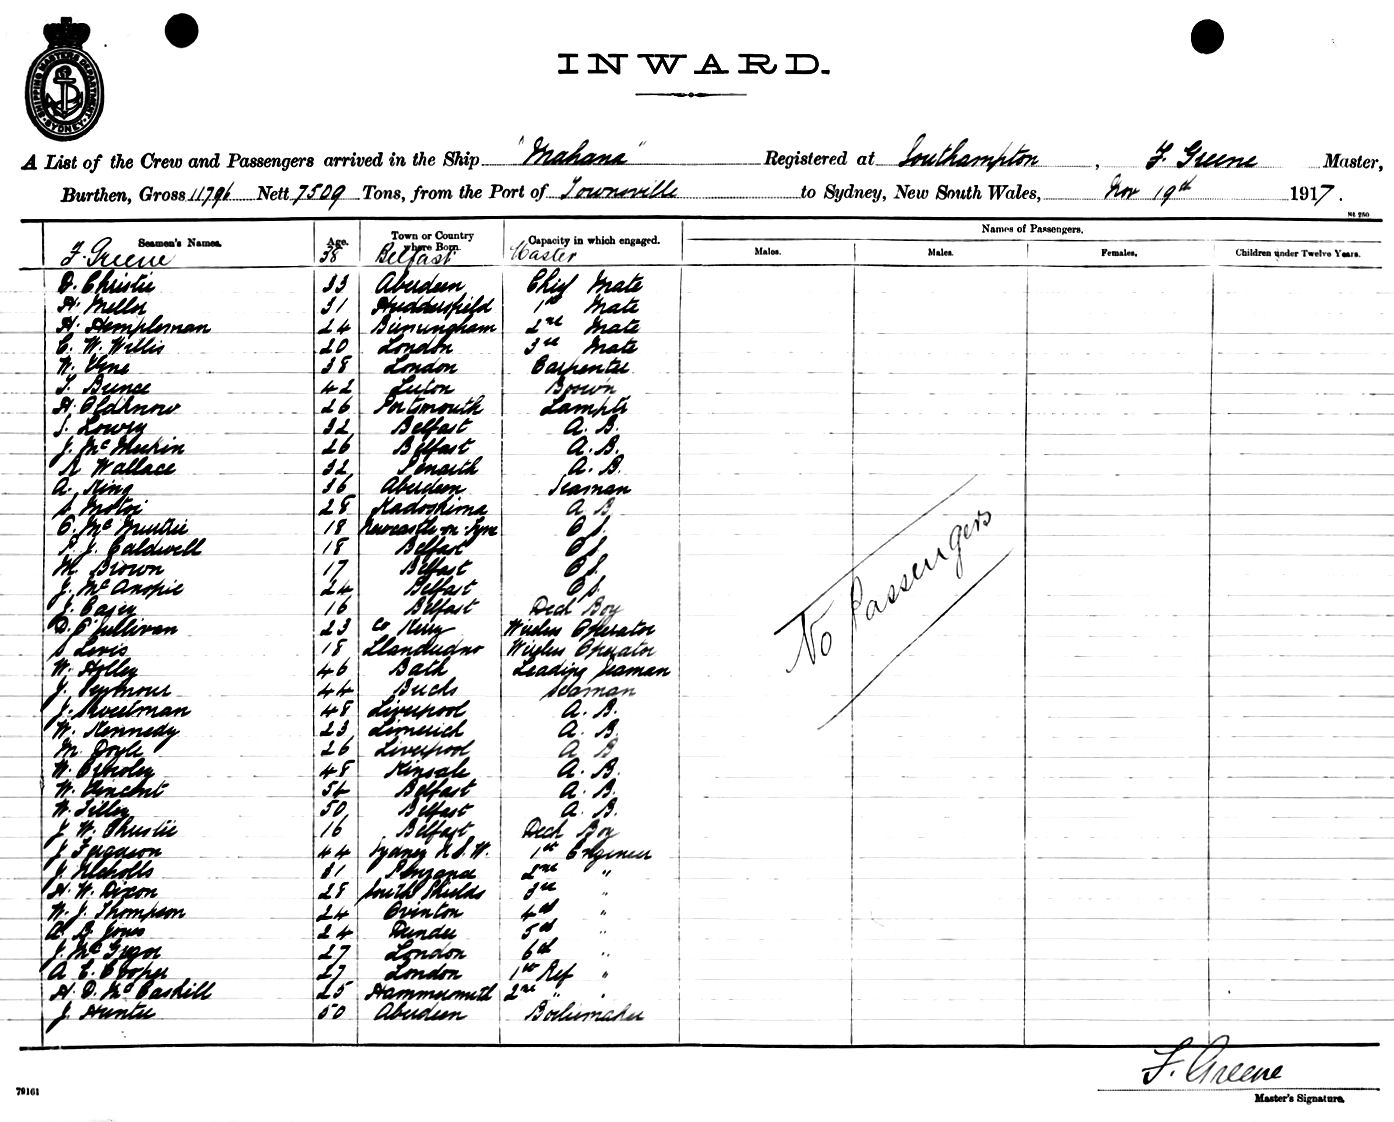 SHIPPING MASTERS DEPARTMENT SYDNEY
INWARD.
A List of the Crew and Passengers arrived in the Ship "Mahana" Registered at Southampton, F Greene Master,
Burthen, Gross 11796 Nett 7509 Tons, from the Port of Townsville to Sydney, New South Wales, Nov 19th 1917.
St 250
Seamen's Names. Age. Town or Country where Born. Capacity in which engaged. Names of Passengers.
Males. Males. Females. Children under Twelve Years.
F Greene 38 Belfast Master
D. Christie 33 Aberdeen Chief Mate
H. Mellor 31 Huddersfield 1st Mate
H. Hempleman 24 Birmingham 2nd Mate
C. W. Willis 20 London 3rd Mate
W. Vine 38 London Carpenter
T. Bunce 42 Luton Bosun
H. Oldknow 26 Portsmouth Lamptr
S. Lowry 32 Belfast A. B.
J. McMeekin 26 Belfast A. B.
R Wallace 32 Penarth A. B.
A. King 36 Aberdeen Seaman
S Motoi 28 Kadoshima A B
C. Mc 18 Newcastle-on-Tyne O S.
J. Caldwell 18 Belfast O S.
M. Brown 17 Belfast O S.
J. Mc 24 Belfast O S.
J. Casey 16 Belfast Deck Boy
D. O'Sullivan 23 Co Kerry Wireless Operator
S Lewis 18 Llandudno Wireless Operator
W. Holley 46 Bath Leading Seaman
J. Seymour 44 Bucks Seaman
J. Sweetman 48 Liverpool A. B.
W. Kennedy 23 Limerick A. B.
M. Doyle 26 Liverpool A B
W. Crowley 48 Kinsale A. B.
W. Vincent 54 Belfast A. B.
W. Tilley 50 Belfast A. B.
J. W. Christie 16 Belfast Deck Boy
J Ferguson 44 Sydney N.S.W. 1st Engineer
J. Nicholls 31 Penzance 2nd "
H. W. Dixon 28 South Shields 3rd "
W. J. Thompson 24 Ovinton 4th "
A B Jones 24 Dundee 5th "
J. McGregor 27 London 6th "
A E. Cooper 27 London 1st Ref "
H. D. McCaskill 25 Hammersmith 2nd " "
J. Hunter 50 Aberdeen Boilermaker
No Passengers
F. Greene
Master's Signature.
79161